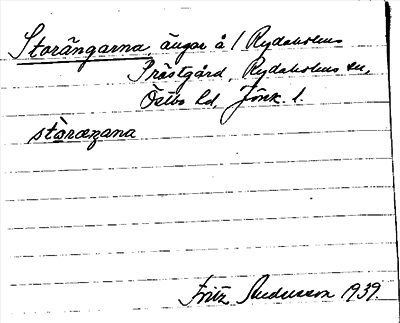 Storängarna, ängar å 1 Rydaholms
Prästgård, Rydaholms sn,
Östbo hd, Jönk. l.
stòraŋana
Fritz Andersson 1939.